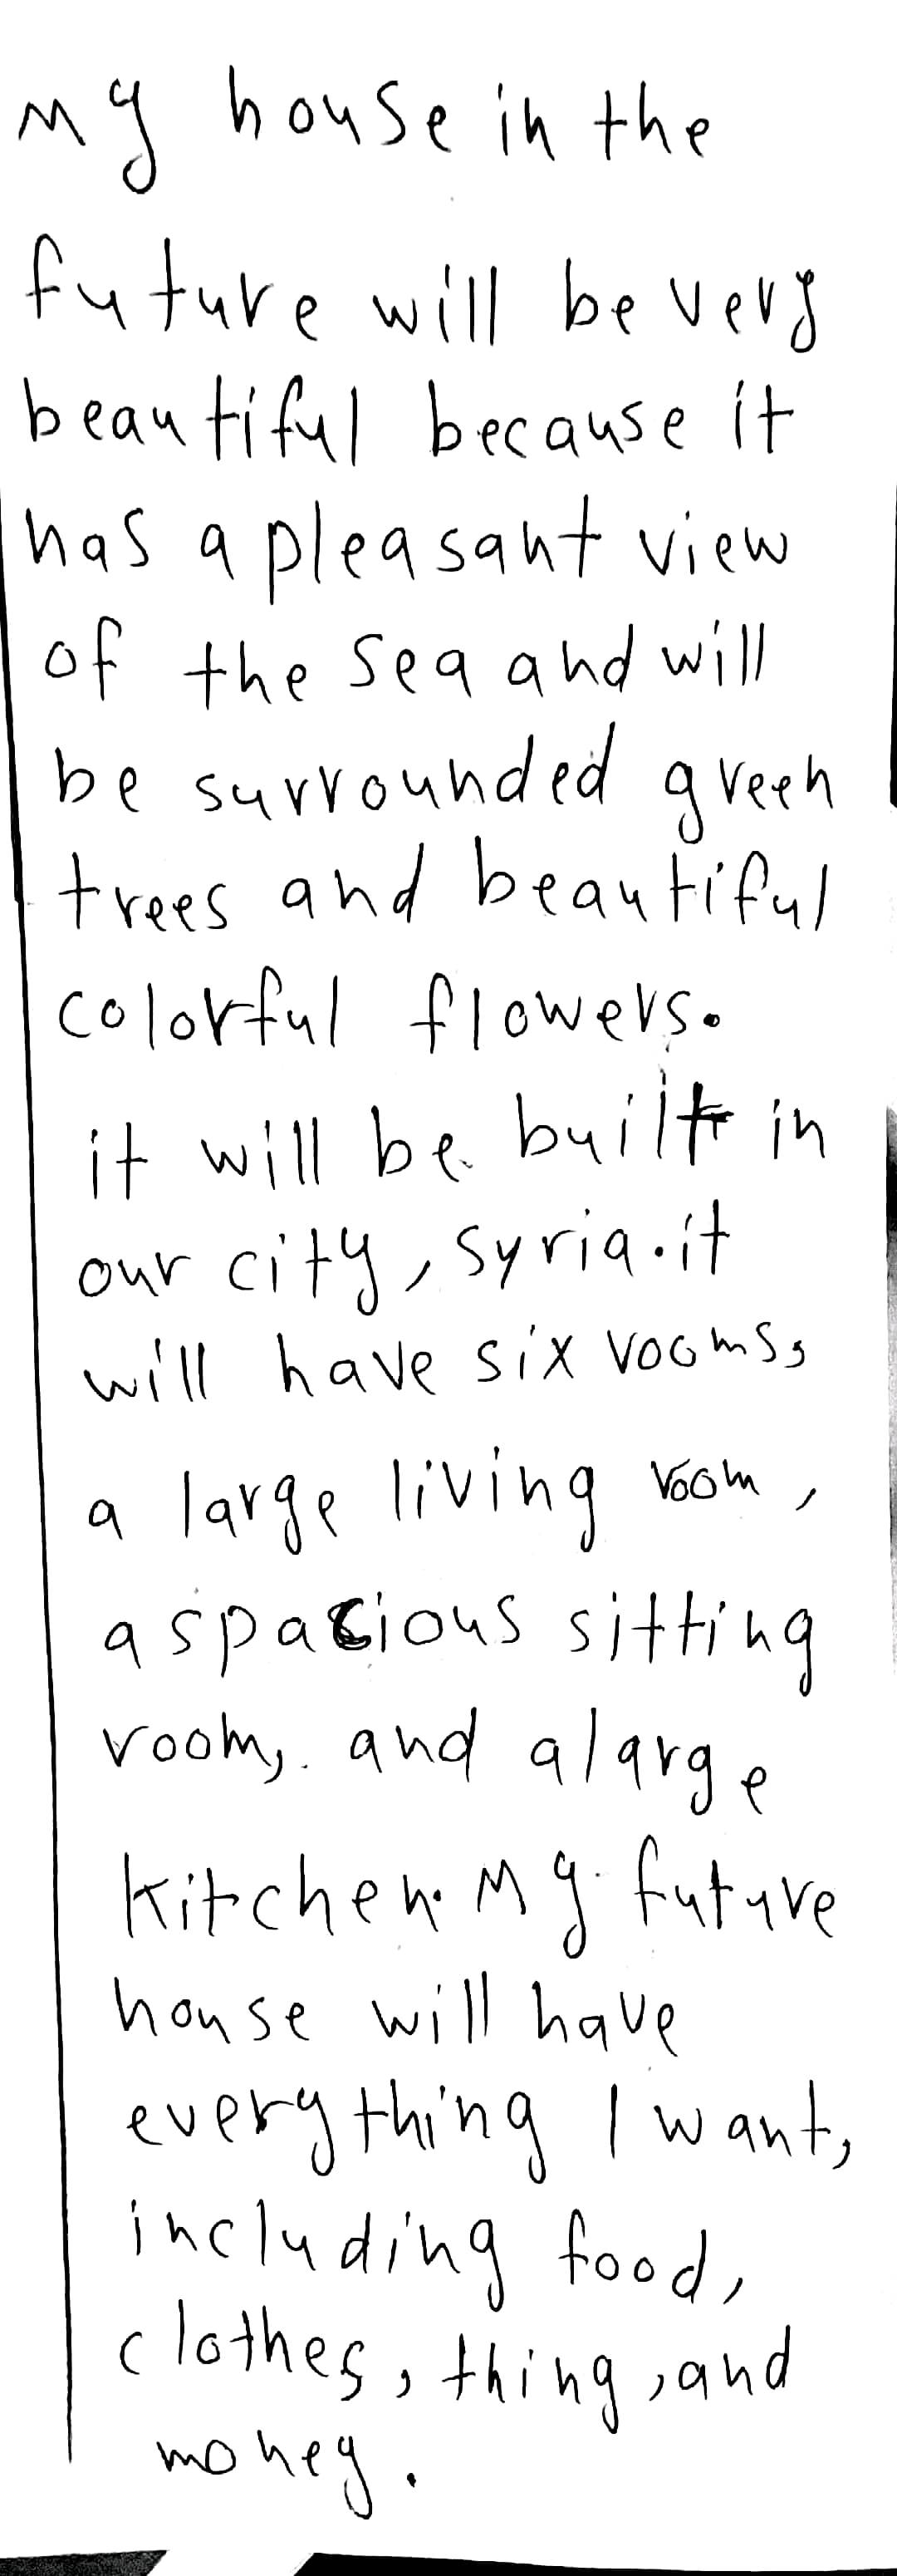 My house in the
future will be very
beautiful because it
has a pleasant view
of the sea and will
be surrounded green
trees and beautiful
colorful flowers.
it will be built in
our city, syria. it
will have six rooms,
a large living room,
a spacious sitting
room, and a large
kitchen. My future
house will have
everything I want,
including food,
clothes, thing, and
money.